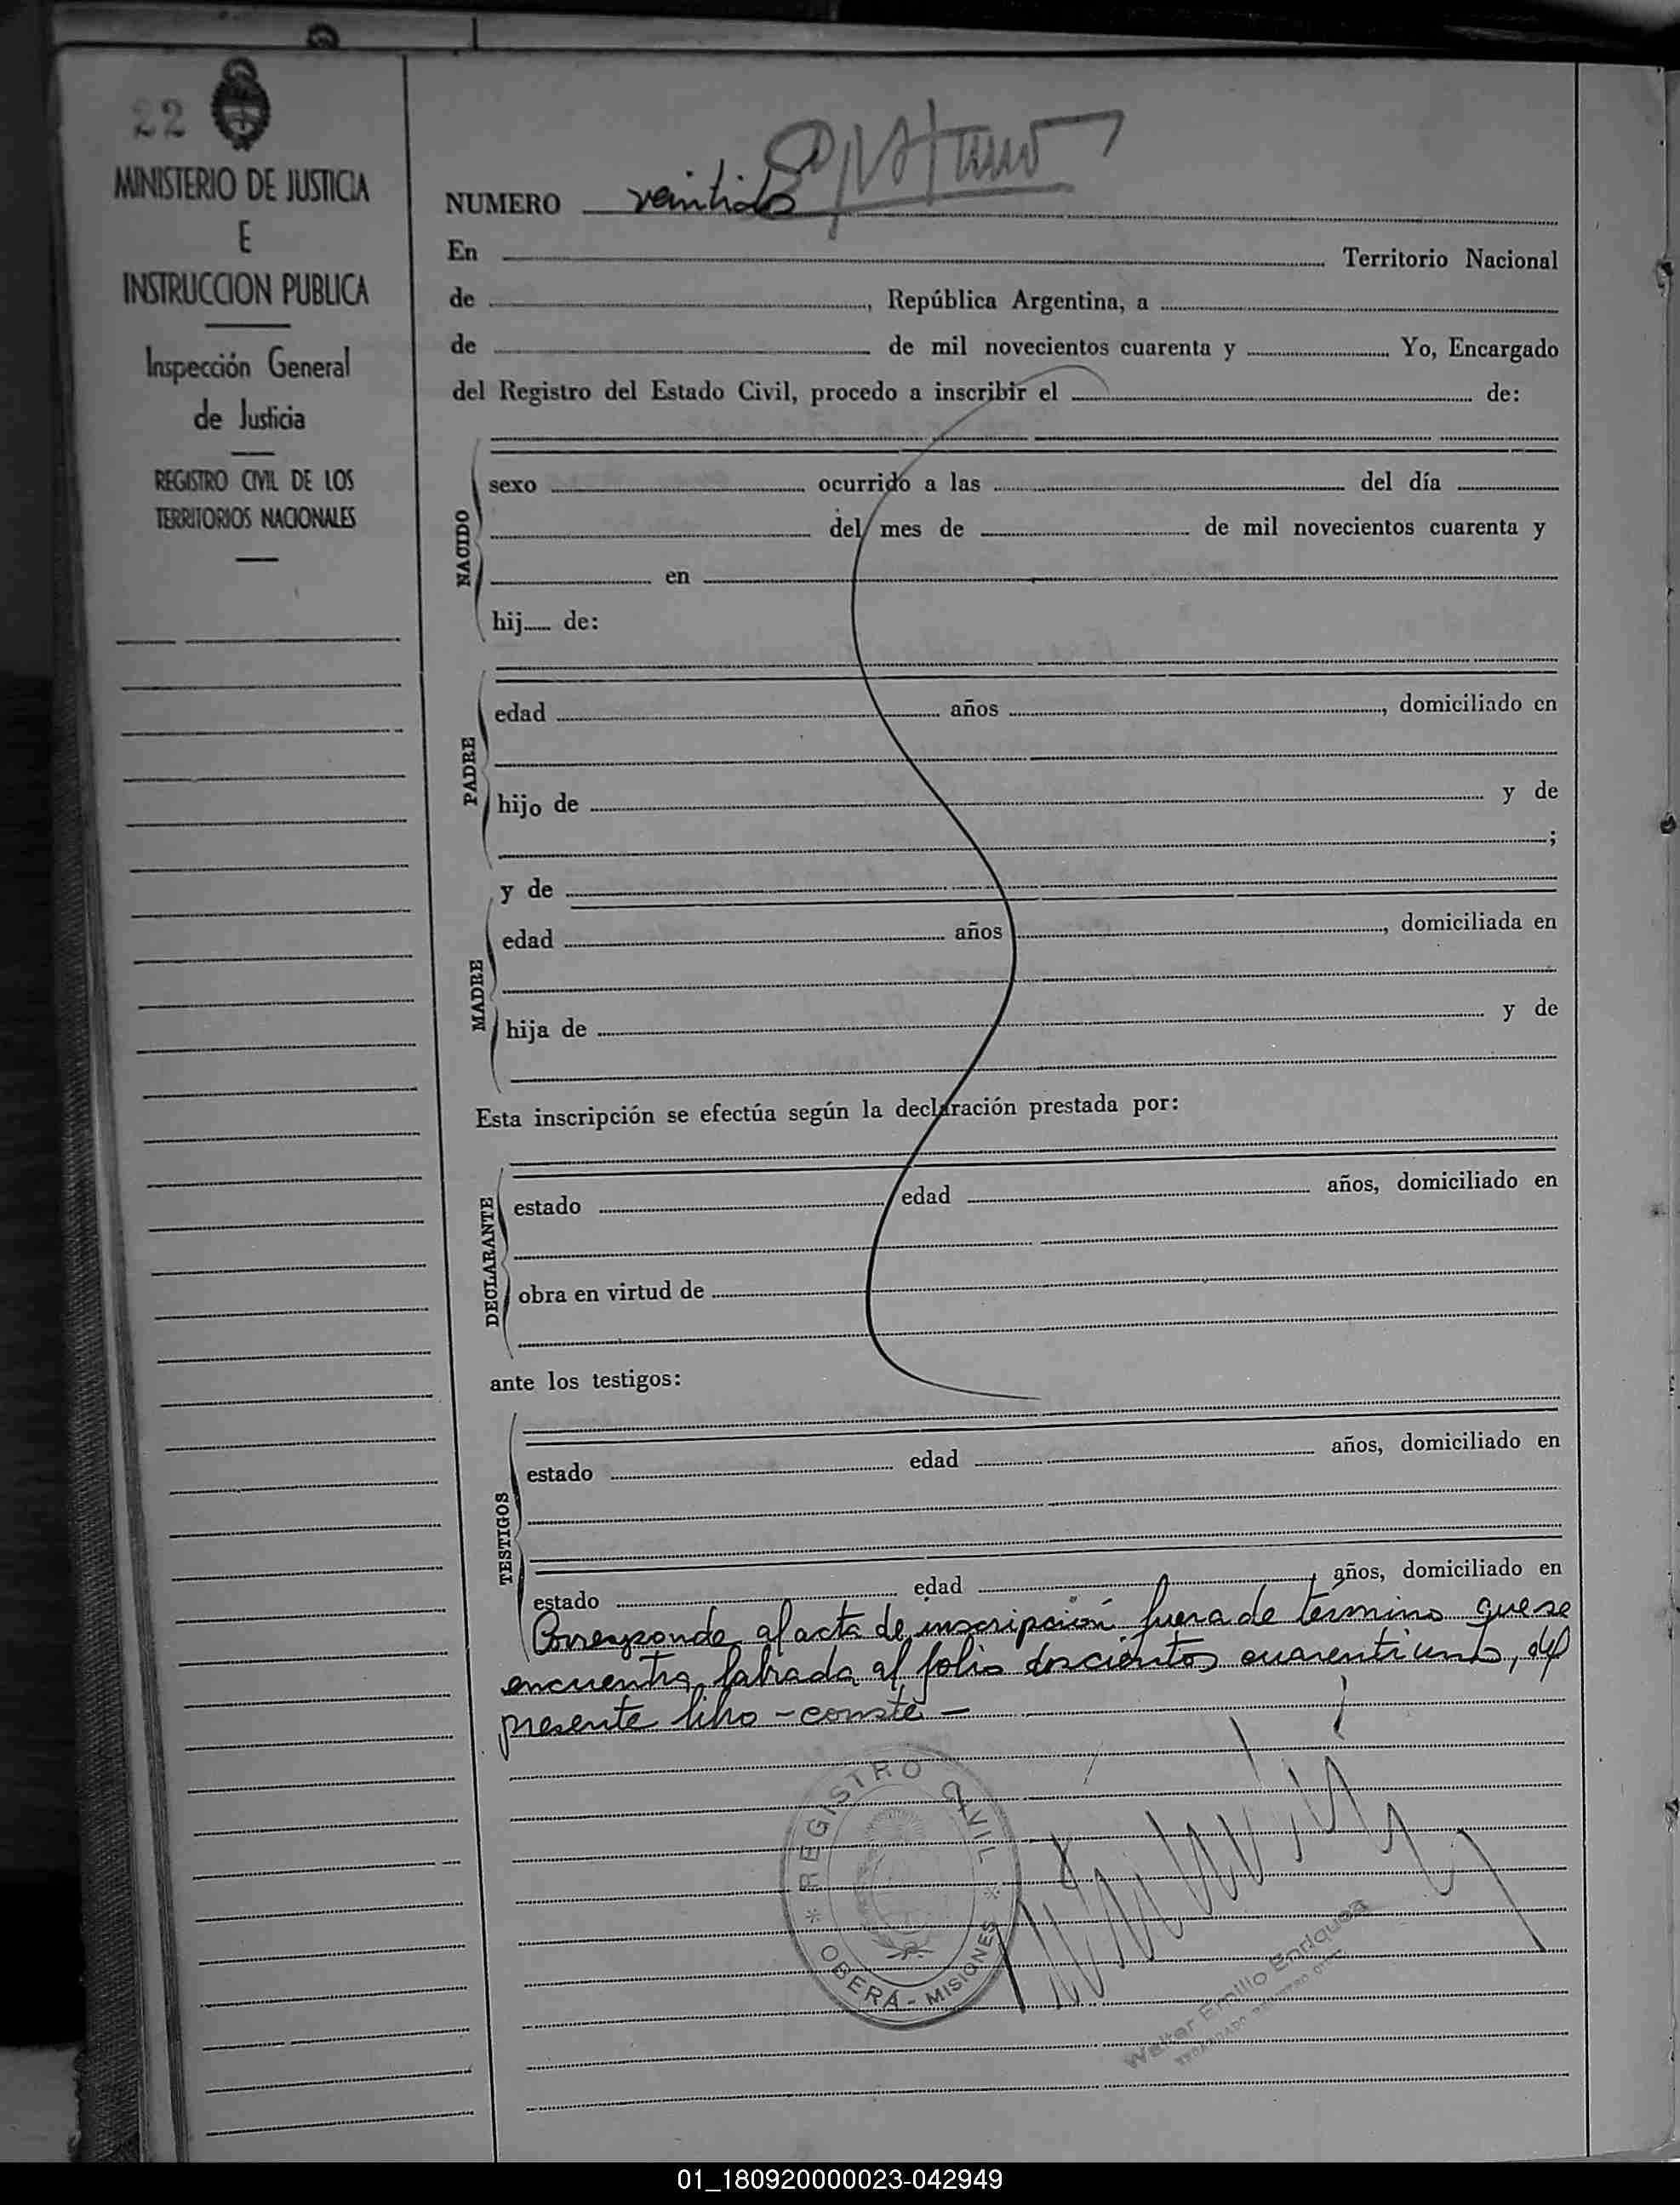 22
MINISTERIO DE JUSTICIA
E
INSTRUCCION PUBLICA
Inspección General
de Justicia
REGISTRO CIVIL DE LOS
TERRITORIOS NACIONALES
NUMERO veintidos
En Territorio Nacional
de , República Argentina, a
de de mil novecientos cuarenta y Yo, Encargado
del Registro del Estado Civil, procedo a inscribir el de:
NACIDO
sexo ocurrido a las del día
del mes de de mil novecientos cuarenta y
en
hij de:
PADRE
edad años , domiciliado en
hijo de y de
;
y de
MADRE
edad años , domiciliada en
hija de y de
Esta inscripción se efectúa según la declaración prestada por:
DECLARANTE
estado edad años, domiciliado en
obra en virtud de
ante los testigos:
TESTIGOS
estado edad años, domiciliado en
estado edad años, domiciliado en
Corresponde al acta de inscripción fuera de término que se
encuentra labrada al folio doscientos cuarentiuno, del
presente libro - conste -
REGISTRO CIVIL
OBERÁ - MISIONES
Walter Emilio Enriquez
ENCARGADO REGISTRO CIVIL
01_180920000023-042949